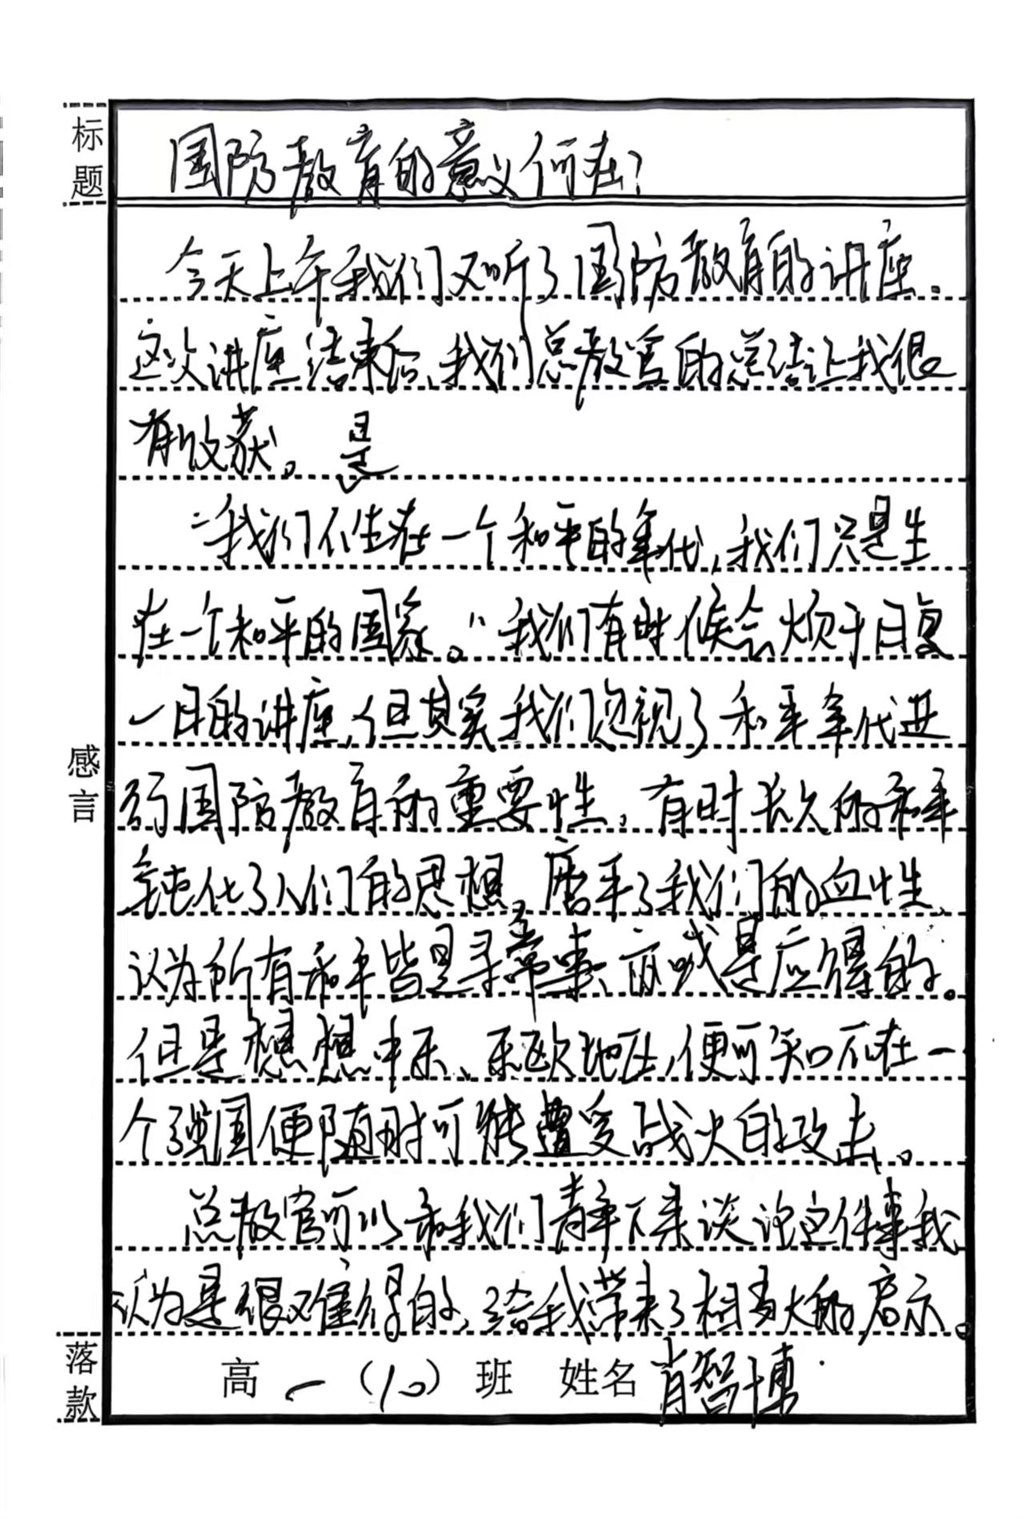 标题
国防教育的意义何在？
今天上午我们又听了国防教育的讲座，
这次讲座结束后，我们总教官的总结让我很
有收获。是
“我们不生在一个和平的年代，我们只是生
在一个和平的国家。”我们有时候会烦于日复
一日的讲座，但其实我们忽视了和平年代进
行国防教育的重要性，有时长久的和平
钝化了人们的思想，磨平了我们的血性，
认为所有和平皆是寻常事、亦或是应得的。
但是想想中东、东欧地区，便可知不在一
个强国便随时可能遭受战火的攻击。
总教官可以和我们静下来谈论这件事我
认为是很难得的，给我带来了相当大的启示。
感言
落款
高一（10）班 姓名 肖智博